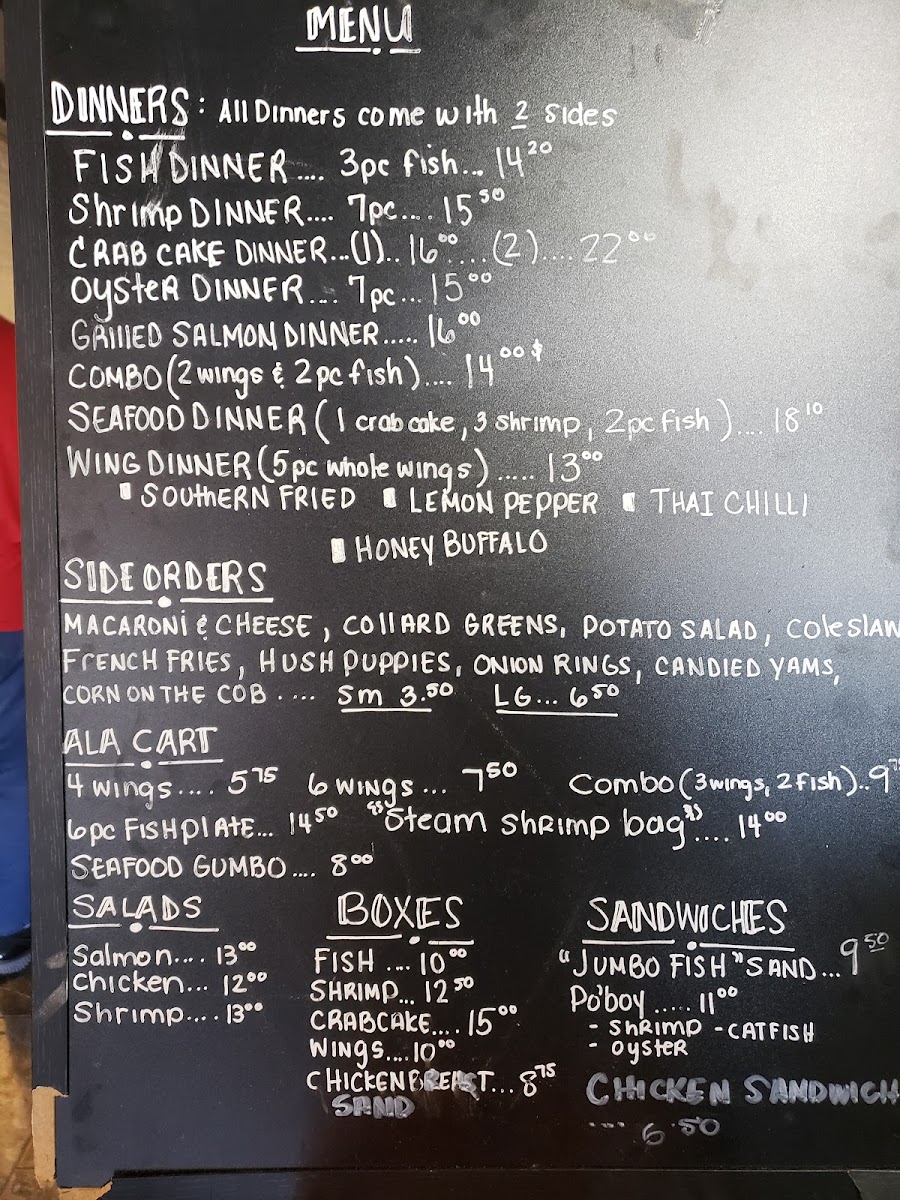 MENU
DINNERS: All Dinners come with 2 sides
FISH DINNER.... 3pc fish... 14 20
Shrimp DINNER.... 7pc.... 15 50
CRAB CAKE DINNER...(1).. 16 00....(2).... 22 00
OysteR DINNER.... 7pc... 15 00
GRIllED SALMON DINNER..... 16 00
COMBO (2 wings & 2pc fish).... 14 00 $
SEAFOOD DINNER (1 crab cake, 3 shrimp, 2pc fish).... 18 10
WING DINNER (5pc whole wings)..... 13 00
SOUTHERN FRIED LEMON PEPPER THAI CHILLI
HONEY BUFFALO
SIDE ORDERS
MACARONi & CHEESE, COllARD GREENS, POTATO SALAD, ColeSlaw
FRENCH FRIES, HUSH PUPPIES, ONION RINGS, CANDIED YAMS,
CORN ON THE COB .... Sm 3.50 LG... 6 50
ALA CART
4 wings.... 5 75 6 wings... 7 50 Combo (3wings, 2 fish)..9
6pc FISHplATE... 14 50 "Steam shrimp bag".... 14 00
SEAFOOD GUMBO.... 8 00
SALADS BOXES SANDWICHES
Salmon.... 13 00 FISH .... 10 00 "JUMBO FISH" SAND... 9 50
Chicken... 12 00 SHRIMP... 12 50 Po'boy ..... 11 00
Shrimp.... 13 00 CRABCAKE.... 15 00 - Shrimp - CATFISH
WINGS....10 00 - oyster
CHICKEN BREAST... 8 75 CHICKEN SANDWICH
SAND .... 6.50